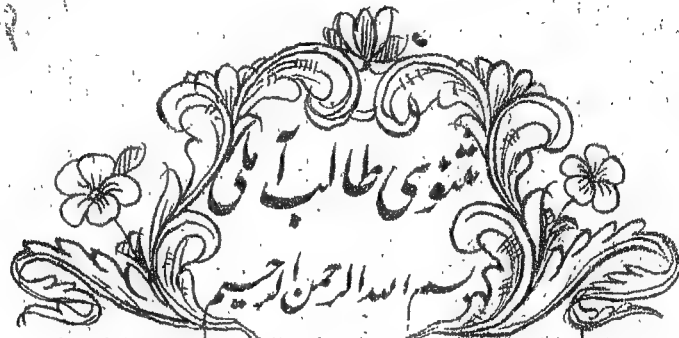 مثنوی طالب آملی
بسم الله الرحمن الرحیم